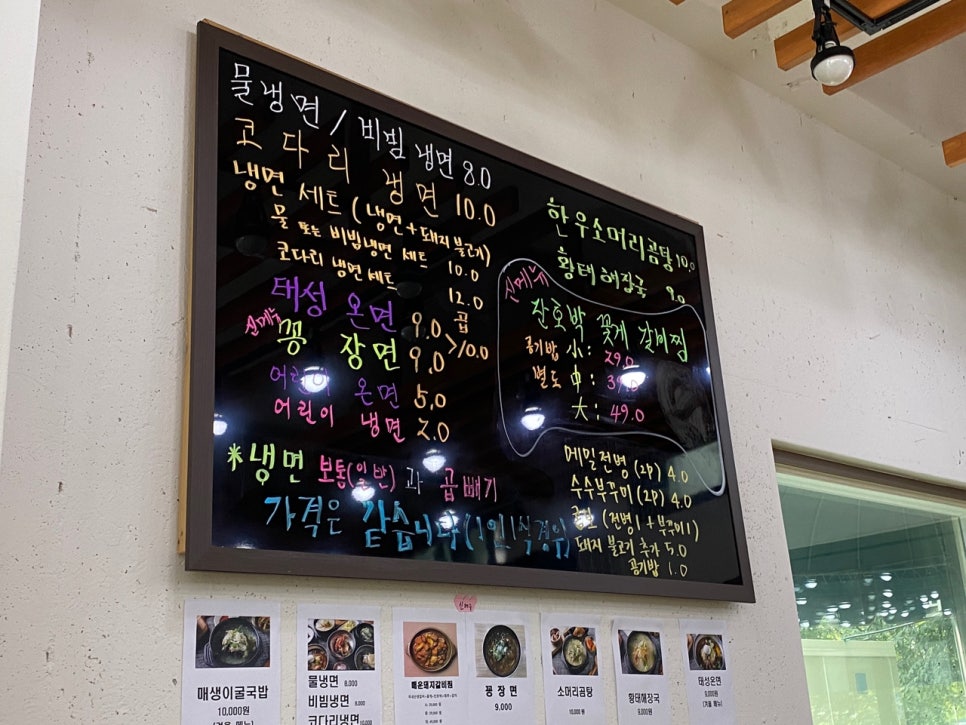 물냉면 / 비빔 냉면 8.0
코다리 냉면 10.0
냉면 세트 (냉면+돼지불고기)
물 또는 비빔냉면 세트 10.0
코다리 냉면 세트 12.0
태성 온면 9.0
신메뉴 꽁 장면 9.0 곱 >10.0
어린이 온면 5.0
어린이 냉면 2.0
*냉면 보통(일반)과 곱빼기
가격은 같습니다(1인1식경우)
한우소머리곰탕 10.0
황태해장국 9.0
신메뉴
단호박 꽃게 갈비찜
공기밥 小: 29.0
별도 中: 39.0
大: 49.0
메밀전병 (2P) 4.0
수수부꾸미 (2P) 4.0
(전병1+부꾸미1)
돼지 불고기 추가 5.0
공기밥 1.0
매생이굴국밥
10,000원
(겨울 메뉴)
물냉면 8,000
비빔냉면 8,000
코다리냉면
신메뉴
매운돼지갈비찜
꽁 장 면
9,000
소머리곰탕
10,000원
황태해장국
9,000원
태성온면
9,000원
(겨울 메뉴)